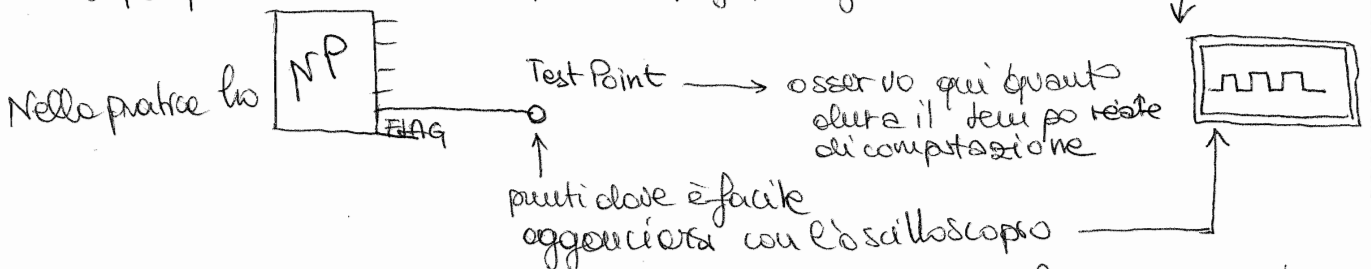 Nella pratica ho
μP
FLAG
Test Point → osservo qui quanto
dura il tempo reale
di computazione
punti dove è facile
agganciarsi con l'oscilloscopio